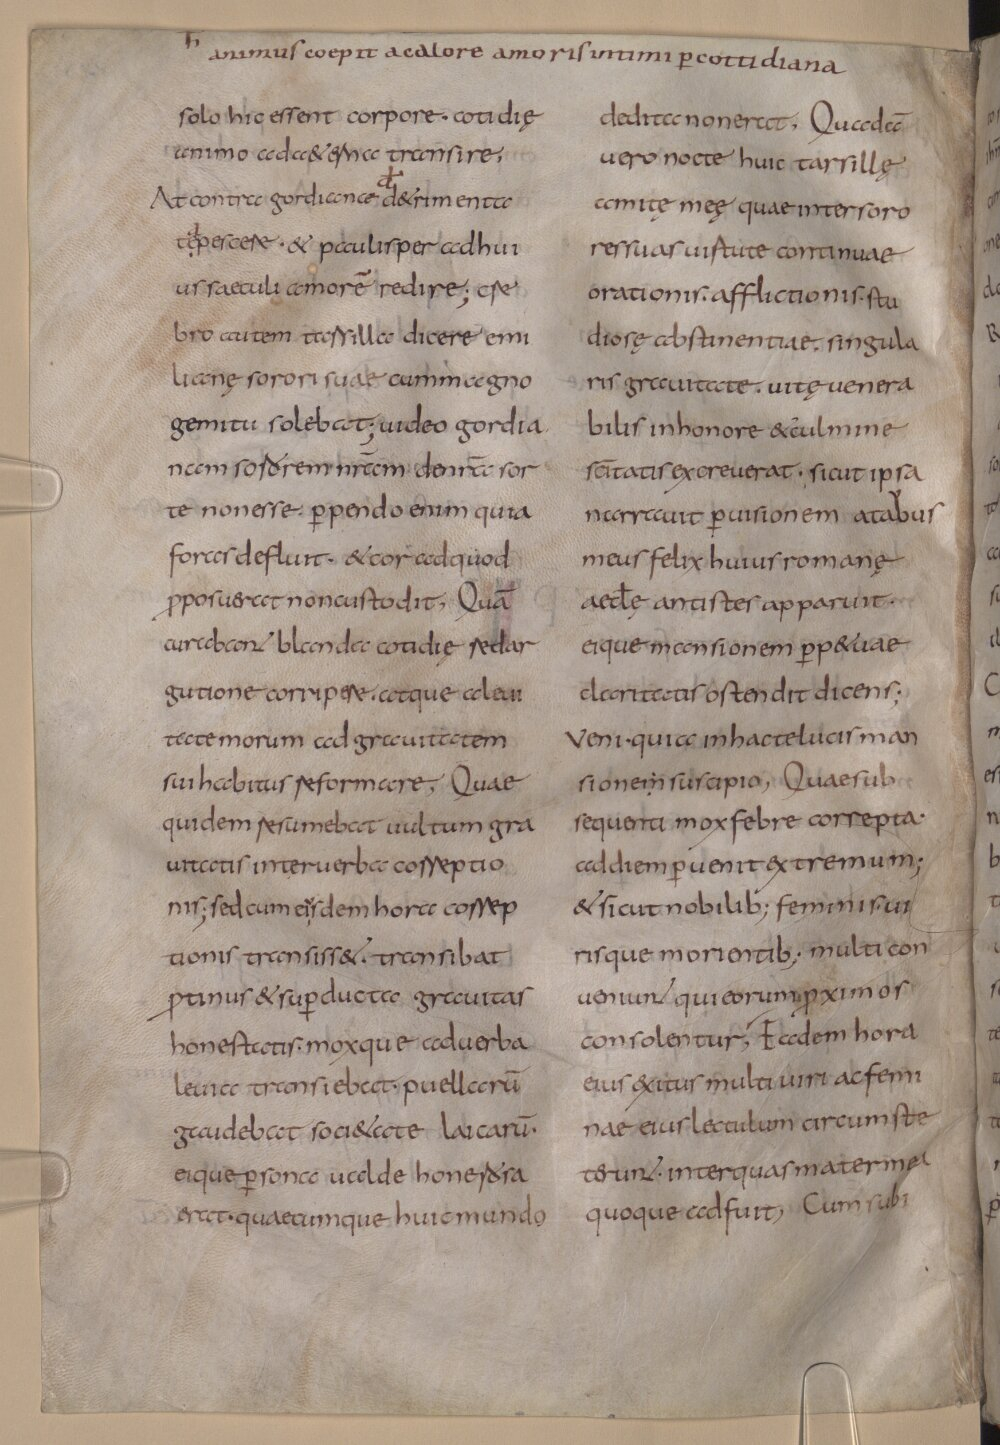 h
animus coepit a calore amoris intimi ꝑ cottidiana
solo hic essent corpore. cotidię
animo ad aet̃na transire,
At contra gordianae d&rimenta
tepescere. & paulisper ad hui
us saeculi amorē redire; cre
bro autem tassilla dicere emi
lianę sorori suae cum magno
gemitu solebat; video gordia
nam sororem nr̄am de nr̄a sor
te non esse. ꝑpendo enim quia
foras defluit. & cor ad quod
ꝓposuerat non custodit, Quā
curabant blanda cotidię redar
gutione corripere. atque a levi
tate morum ad gravitatem
sui habitus reformare, Quae
quidem resumebat vultum gra
vitatis inter verba correptio
nis; sed cum eisdem hora correp
tionis transiss&. transibat
ꝓtinus & suꝑducta gravitas
honestatis. moxque ad verba
levia transiebat. puellarū
gaudebat soci&ate laicarū.
eique ꝑsona valde honerosa
erat. quaecumque huic mundo
dedita non erat, Quadā
vero nocte huic tarsillę
amitę meę quae inter soro
res suas virtute continuae
orationis. afflictionis. stu
diosę abstinentiae. singula
ris gravitate. vitę venera
bilis in honore & culmine
sc̄itatis excreverat. sicut ipsa
narravit ꝑ visionem atavus
meus felix huius romanę
aecłe antistes apparuit.
eique mansionem ꝑp&uae
claritatis ostendit dicens;
Veni. quia in hac te lucis man
sionem suscipio, Quae sub
sequenti mox febre correpta.
ad diem ꝑvenit extremum;
& sicut nobilib; feminis. vi
risque morientib; multi con
veniunt qui eorum ꝓximos
consolentur, Eadem hora
eius exitus multi viri ac femi
nae eius lectulum circumste
terunt. inter quas mater mea
quoque adfuit, Cum subi